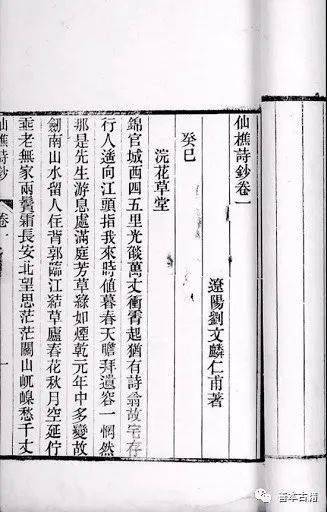 仙樵詩鈔卷一
遼陽劉文麟仁甫著
癸巳
浣花草堂
錦官城西四五里光燄萬丈衝霄起猶有詩翁故宅存
行人遙向江頭指我來時値暮春天瞻拜遺容一惘然
那是先生游息處滿庭芳草綠如煙乾元年中多變故
劍南山水留人住背郭臨江結草廬春花秋月空延佇
垂老無家兩鬢霜長安北望思茫茫關山岏嵲愁千丈
仙樵詩鈔
卷一
一
善本古籍